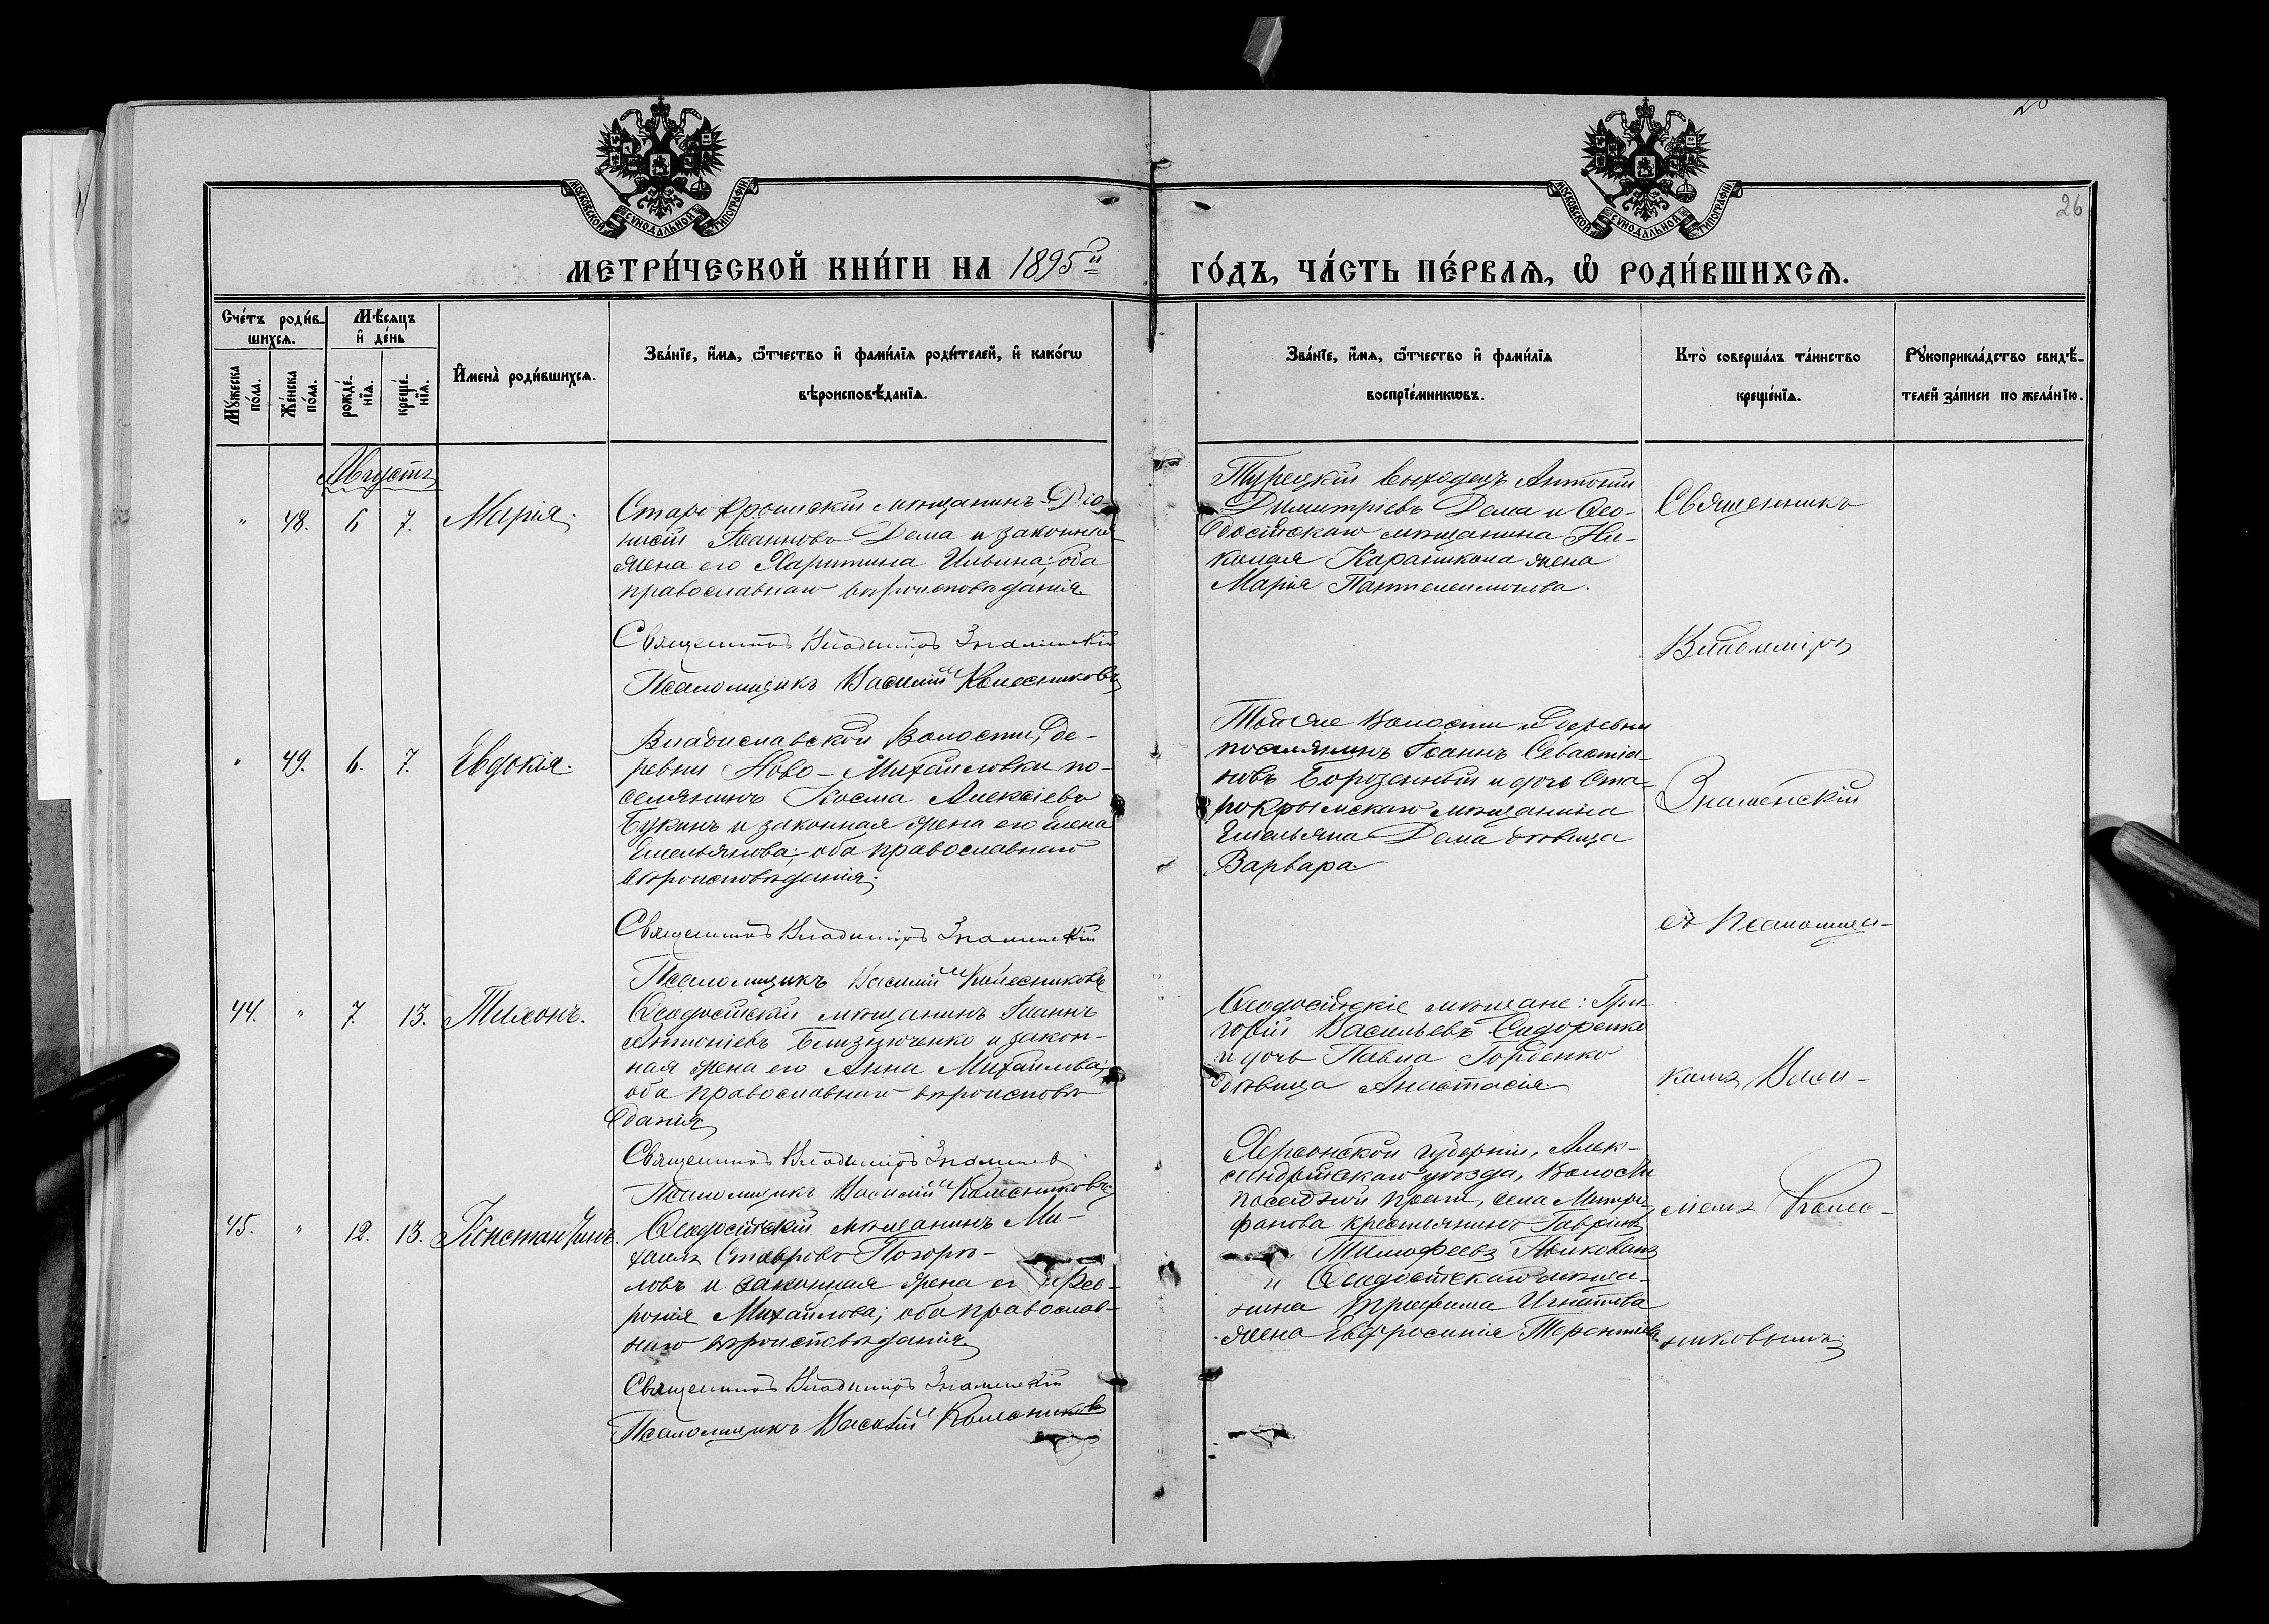 26
МОСКОВСКОЙ СѴНОДАЛЬНОЙ ТИПОГРАФІИ
МОСКОВСКОЙ СѴНОДАЛЬНОЙ ТИПОГРАФІИ
МЕТРИ́ЧЕСКОЙ КНИ́ГИ НА 1895й ГО́ДЪ, ЧА́СТЬ ПЕ́РВАѦ, Ѡ РОДИ́ВШИХСѦ.
Сче́тъ роди́в-
шихсѧ.
Мꙋ́жеска
по́ла.
Же́нска
по́ла.
Мѣ́сяцъ
и де́нь
рожде́-
нїѧ.
креще́-
нїѧ.
Имена̀ роди́вшихсѧ.
Зва́нїе, и́мѧ, ѻ́тчество и фами́лїѧ роди́телей, и како́гѡ
вѣроисповѣ́данїѧ.
Зва́нїе, и́мѧ, ѻ́тчество и фами́лїѧ
воспрїе́мникѡвъ.
Кто̀ соверша́лъ та́инство
креще́нїѧ.
Рꙋкоприкла́дство свидѣ́-
телей за́писи по жела́нїю.
Августъ
" 48. 6 7. Марія.
Старокрымскій мѣщанинъ Діо-
нисій Іоанновъ Дема и законная
жена его Харитина Ильина; оба
православнаго вѣроисповѣданія.
Священникъ Владиміръ Знаменскій
Псаломщикъ Василій Колесниковъ
Турецкій выходецъ Антоній
Димитріевъ Дема и Ѳео-
досійскаго мѣщанина Ни-
колая Карайкоза жена
Марія Пантелеимонова.
" 49. 6. 7. Евдокія.
Владиславской Волости, де-
ревни Ново-Михайловки по-
селянинъ Косма Алексіевъ
Букинъ и законная жена его Елена
Емельянова; оба православнаго
вѣроисповѣданія;
Священникъ Владиміръ Знаменскій
Псаломщикъ Василій Колесниковъ
Той же Волости и деревни
поселянинъ Іоаннъ Севастіа-
новъ и дочь Ста-
рокрымскаго мѣщанина
Емельяна Дема дѣвица
Варвара
44. " 7. 13. Тихонъ.
Ѳеодосійскій мѣщанинъ Іоаннъ
Антоніевъ Близнюченко и закон-
ная жена его Анна Михайлова;
оба православнаго вѣроисповѣ-
данія
Священникъ Владиміръ Знаменск
Псаломщикъ Василій Колесниковъ
Ѳеодосійскіе мѣщане: Гри-
горій Васильевъ Сидоренко
и дочь Павла Гордѣенко
дѣвица Анастасія
45. " 12. 13. Константинъ.
Ѳеодосійскій мѣщанинъ Ми-
хаилъ Ставровъ Погорѣ-
ловъ и законная жена его Фев-
ронія Михайлова; оба православ-
наго вѣроисповѣданія
Священникъ Владиміръ Знаменскій
Псаломщикъ Василій Колесников
Херсонской губерніи, Алек-
сандрійскаго уѣзда, Волости
села Митро-
фанова крестьянинъ Гавріилъ
Тимофеевъ
и Ѳеодосійскаго мѣща-
нина Трофима Игнатова
жена Евфросинія Терентіева
Священникъ
Владиміръ
Знаменскій
съ Псаломщи-
комъ Васи-
ліемъ Колес-
никовымъ;